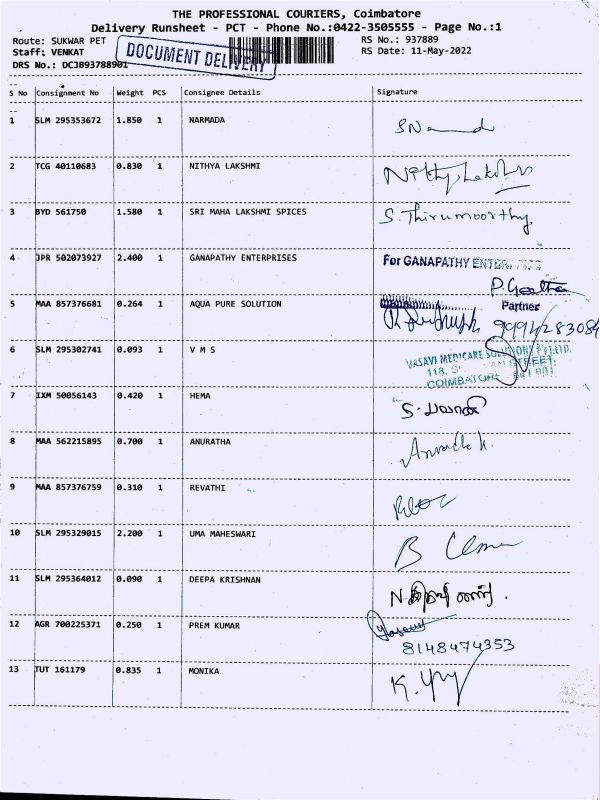 THE PROFESSIONAL COURIERS, Coimbatore
Delivery Runsheet - PCT - Phone No.:0422-3505555 - Page No.:1
Route: SUKWAR PET
RS No.: 937889
Staff: VENKAT
RS Date: 11-May-2022
DRS No.: DCJB93788901
DOCUMENT DELIVERY
S No Consignment No Weight PCS Consignee Details Signature
1 SLM 295353672 1.850 1 NARMADA
2 TCG 40110683 0.830 1 NITHYA LAKSHMI Nithya Lakshmi
3 BYD 561750 1.580 1 SRI MAHA LAKSHMI SPICES S. Thirumoorthy.
4 JPR 502073927 2.400 1 GANAPATHY ENTERPRISES For GANAPATHY
Partner
5 MAA 857376681 0.264 1 AQUA PURE SOLUTION
6 SLM 295302741 0.093 1 V M S VASAVI MEDICARE
118,
COIMBATORE
7 IXM 50056143 0.420 1 HEMA
8 MAA 562215895 0.700 1 ANURATHA
9 MAA 857376759 0.310 1 REVATHI
10 SLM 295329015 2.200 1 UMA MAHESWARI
11 SLM 295364012 0.090 1 DEEPA KRISHNAN
12 AGR 700225371 0.250 1 PREM KUMAR
8148474353
13 TUT 161179 0.835 1 MONIKA